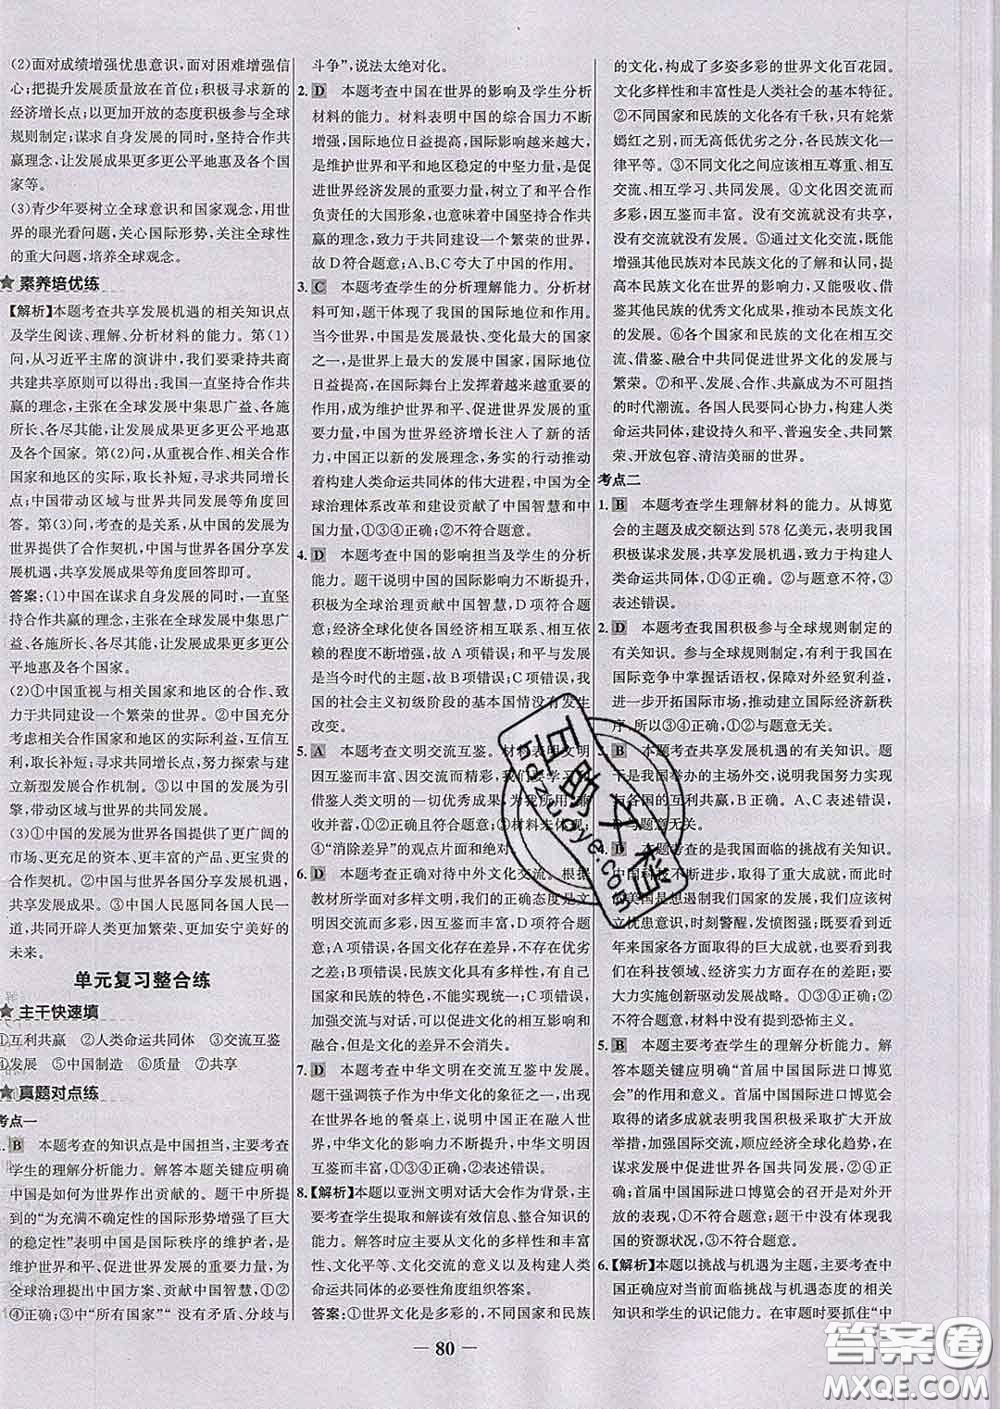 (2)面对成绩增强忧患意识,面对困难增强信
心;把提升发展质量放在首位;积极寻求新的
经济增长点;以更加开放的态度积极参与全球
规则制定;谋求自身发展的同时,坚持合作共
赢理念,让发展成果更多更公平地惠及各个国
家等。
(3)青少年要树立全球意识和国家观念,用世
界的眼光看问题,关心国际形势,关注全球性
的重大问题,培养全球观念。
★ 素养培优练
【解析】本题考查共享发展机遇的相关知识点
及学生阅读、理解、分析材料的能力。第(1)
问,从习近平主席的演讲中,我们要秉持共商
共建共享原则可以得出;我国一直坚持合作共
赢的理念,主张在全球发展中集思广益、各施
所长、各尽其能,让发展成果更多更公平地惠
及各个国家。第(2)问,从重视合作、相关合作
国家和地区的实际,取长补短,寻求共同繁荣
出;中国带动区域与世界共同发展等角度回答
即可。第(3)问,考查的是关系,从中国的发展为
世界提供了合作契机,中国与世界各国分享发
展机遇,共享发展成果等角度回答即可。
答案:(1)中国在谋求自身发展的同时,一直坚
持合作共赢的理念,主张在全球发展中集思广
益、各施所长、各尽其能,让发展成果更多更公
平地惠及各个国家。
(2)①中国重视与相关国家和地区的合作、致
力于共同建设一个繁荣的世界。②中国充分
考虑相关合作国家和地区的实际利益,互信互
利,取长补短,寻求共同繁荣,努力探索与建立
新型发展合作机制。③以中国的发展为引
擎,带动区域与世界的共同发展。
(3)①中国的发展为世界各国提供了更广阔的
市场、更充足的资本、更丰富的产品、更宝贵的
合作契机。②中国与世界各国分享发展机遇,
共享发展成果。③中国人民愿同各国人民一
道,共同开辟人类更加繁荣、更加安宁美好的
未来。
单元复习整合练
★ 主干快速填
①互利共赢 ②人类命运共同体 ③交流互鉴
④发展 ⑤中国制造 ⑥质量 ⑦共享
★ 真题对点练
考点一
1. B 本题考查的知识点是中国担当,主要考查
学生的理解分析能力。解答本题关键应明确
中国是如何为世界作出贡献的。题干中所提
到的“为充满不确定性的国际形势增强了巨大
的稳定性”表明中国是国际秩序的维护者,是
维护世界和平、促进世界发展的重要力量,为
全球治理提出中国方案、贡献中国智慧,①②
④正确;③中“所有国家”“没有矛盾、分歧与
斗争”,说法太绝对化。
2. D 本题考查中国在世界的影响及学生分析
材料的能力。材料表明中国的综合国力不断
增强,国际地位日益提高,国际影响越来越大,
是维护世界和平和地区稳定的中坚力量,是促
进世界经济发展的重要力量,树立了和平合作
负责任的大国形象,也意味着中国坚持合作共
赢的理念,致力于共同建设一个繁荣的世界,
故 D 符合题意;A、B、C 夸大了中国的作用。
3. C 本题考查学生的分析理解能力。分析材
料可知,题干体现了我国的国际地位和作用。
当今世界,中国是发展最快、变化最大的国家
之一,是世界上最大的发展中国家,国际地位
日益提高,在国际舞台上发挥着越来越重要的
作用,成为维护世界和平、促进世界发展的重
要力量,中国为世界经济增长注入了新的活
力,中国正以新的发展理念、务实的行动推动
着构建人类命运共同体的伟大进程,中国为全
球治理体系改革和建设贡献了中国智慧和中
国力量,①③④正确;②不符合题意。
4. D 本题考查中国的影响担当及学生的分析
能力。题干说明中国的国际影响力不断提升,
积极为全球治理贡献中国智慧,D 项符合题
意;经济全球化使各国经济相互联系、相互依
赖的程度不断增强,A 项错误;和平与发展是
当今时代的主题,故 B 项错误;C 项错误,我国
的社会主义初级阶段的基本国情没有发生
改变。
5. A 本题考查文明交流互鉴。材料表明文明
因互鉴而丰富、因交流而精彩。我们要学习、
借鉴人类文明的一切优秀成果,为我所用,兼
收并蓄,①②正确且符合题意;③材料未体现;
④“消除差异”的观点片面和绝对。
6. D 本题考查正确对待中外文化交流。根据
教材所学面对多样文明,我们的正确态度是文
明因交流而多彩、因互鉴而丰富,D 项符合题
意;A 项错误,各国文化存在差异,不存在优
劣;B 项错误,民族文化的差异性,体现了不同
国家和民族的特色,不能实现统一;C 项错误,
加强交流与对话,可以促进文化的相互影响和
融合,但文化的差异不会消失。
7. D 本题考查中华文明在交流互鉴中发展。
题干强调筷子作为中华文化的象征之一,出现
在世界各地的餐桌上,说明中国正在融入世
界,中华文化的影响力不断提升,中华文明因
互鉴而丰富,①④符合题意;②③不符合题意。
8. 【解析】本题以亚洲文明对话大会作为背景,主
要考查学生提取和解读有效信息、整合知识的
能力。解答时应主要从文化的多样性和丰富
性、文化交流、文化交流的意义以及构建人类
命运共同体的必要性角度组织答案。
答案:①世界文化是多彩的,不同国家和民族
的文化,构成了多姿多彩的世界文化百花园。
文化多样性和丰富性是人类社会的基本特征。
②不同国家和民族的文化各有千秋,只有姹紫
嫣红之别,而无高低优劣之分,各民族文化一
律平等。③不同文化之间应该相互尊重、相互
交流、相互学习、共同发展。④文化因交流
而多彩,因互鉴而丰富。没有交流就没有共享,
没有交流就没有发展。⑤通过文化交流,既能
增强其他民族对本民族文化的了解和认识,促
进本民族文化在世界的影响,又能吸收、借鉴
其他民族的优秀文化成果,推动本民族文化的
发展。⑥各个国家和民族的文化在相互交
流、借鉴、融合中共同促进世界文化的发展与
繁荣。⑦和平、发展、合作、共赢成为不可阻挡
的时代潮流。各国人民要同心协力,构建人类
命运共同体,建设持久和平、普遍安全、共同繁
荣、开放包容、清洁美丽的世界。
考点二
1. B 本题考查学生理解材料的能力。从博览
会的主题及成交额达到 578 亿美元,表明我国
积极谋求发展,共享发展机遇,致力于构建人
类命运共同体,①④正确;②与题意不符,③
表述错误。
2. D 本题考查我国积极参与全球规则制定的
有关知识。参与全球规则制定,有利于我国在
国际竞争中掌握话语权,保障对外经贸利益,
进一步开拓国际市场,推动建立国际经济新秩
序,所以③④正确,①②与题意无关。
3. B 本题考查共享发展机遇的有关知识。题
干是我国举办的主场外交,说明我国努力实现
与各国的互利共赢,B 正确。A、C 表述错误,
与题意无关。
4. D 本题考查的是我国面临的挑战有关知识。
中国科技不断进步,取得了重大成就,而此时
的美国是想遏制我们国家的发展,我们应该树
立忧患意识,时刻警醒,发愤图强。我们看到
近年来国家各方面取得的巨大成就,应该看到
在科技领域、经济方面仍存在的差距。更要
大力实施创新驱动发展战略。①③④正确。
②与题意不符,材料中没有提到恐怖主义。
5. B 本题主要考查学生的理解分析能力。解
答本题关键应明确“首届中国国际进口博览会”
的作用和意义。首届中国国际进口博览会
取得的诸多成就表明我国积极采取扩大开放
举措,加强国际交流,顺应经济全球化趋势,在
谋求发展中促进世界各国共同发展,①④符合
题意;首届中国国际进口博览会的召开是对外开
放,①不符合题意;题干中没有体现我
国的资源状况,③不符合题意。
6. 【解析】本题以挑战与机遇为主题,主要考查中
国正确应对当前面临挑战与机遇态度的相关
知识和学生的识记能力。在审题时要抓住“中
— 80 —
互助文档
hdzuoye.com
答案圈
MXQE.COM